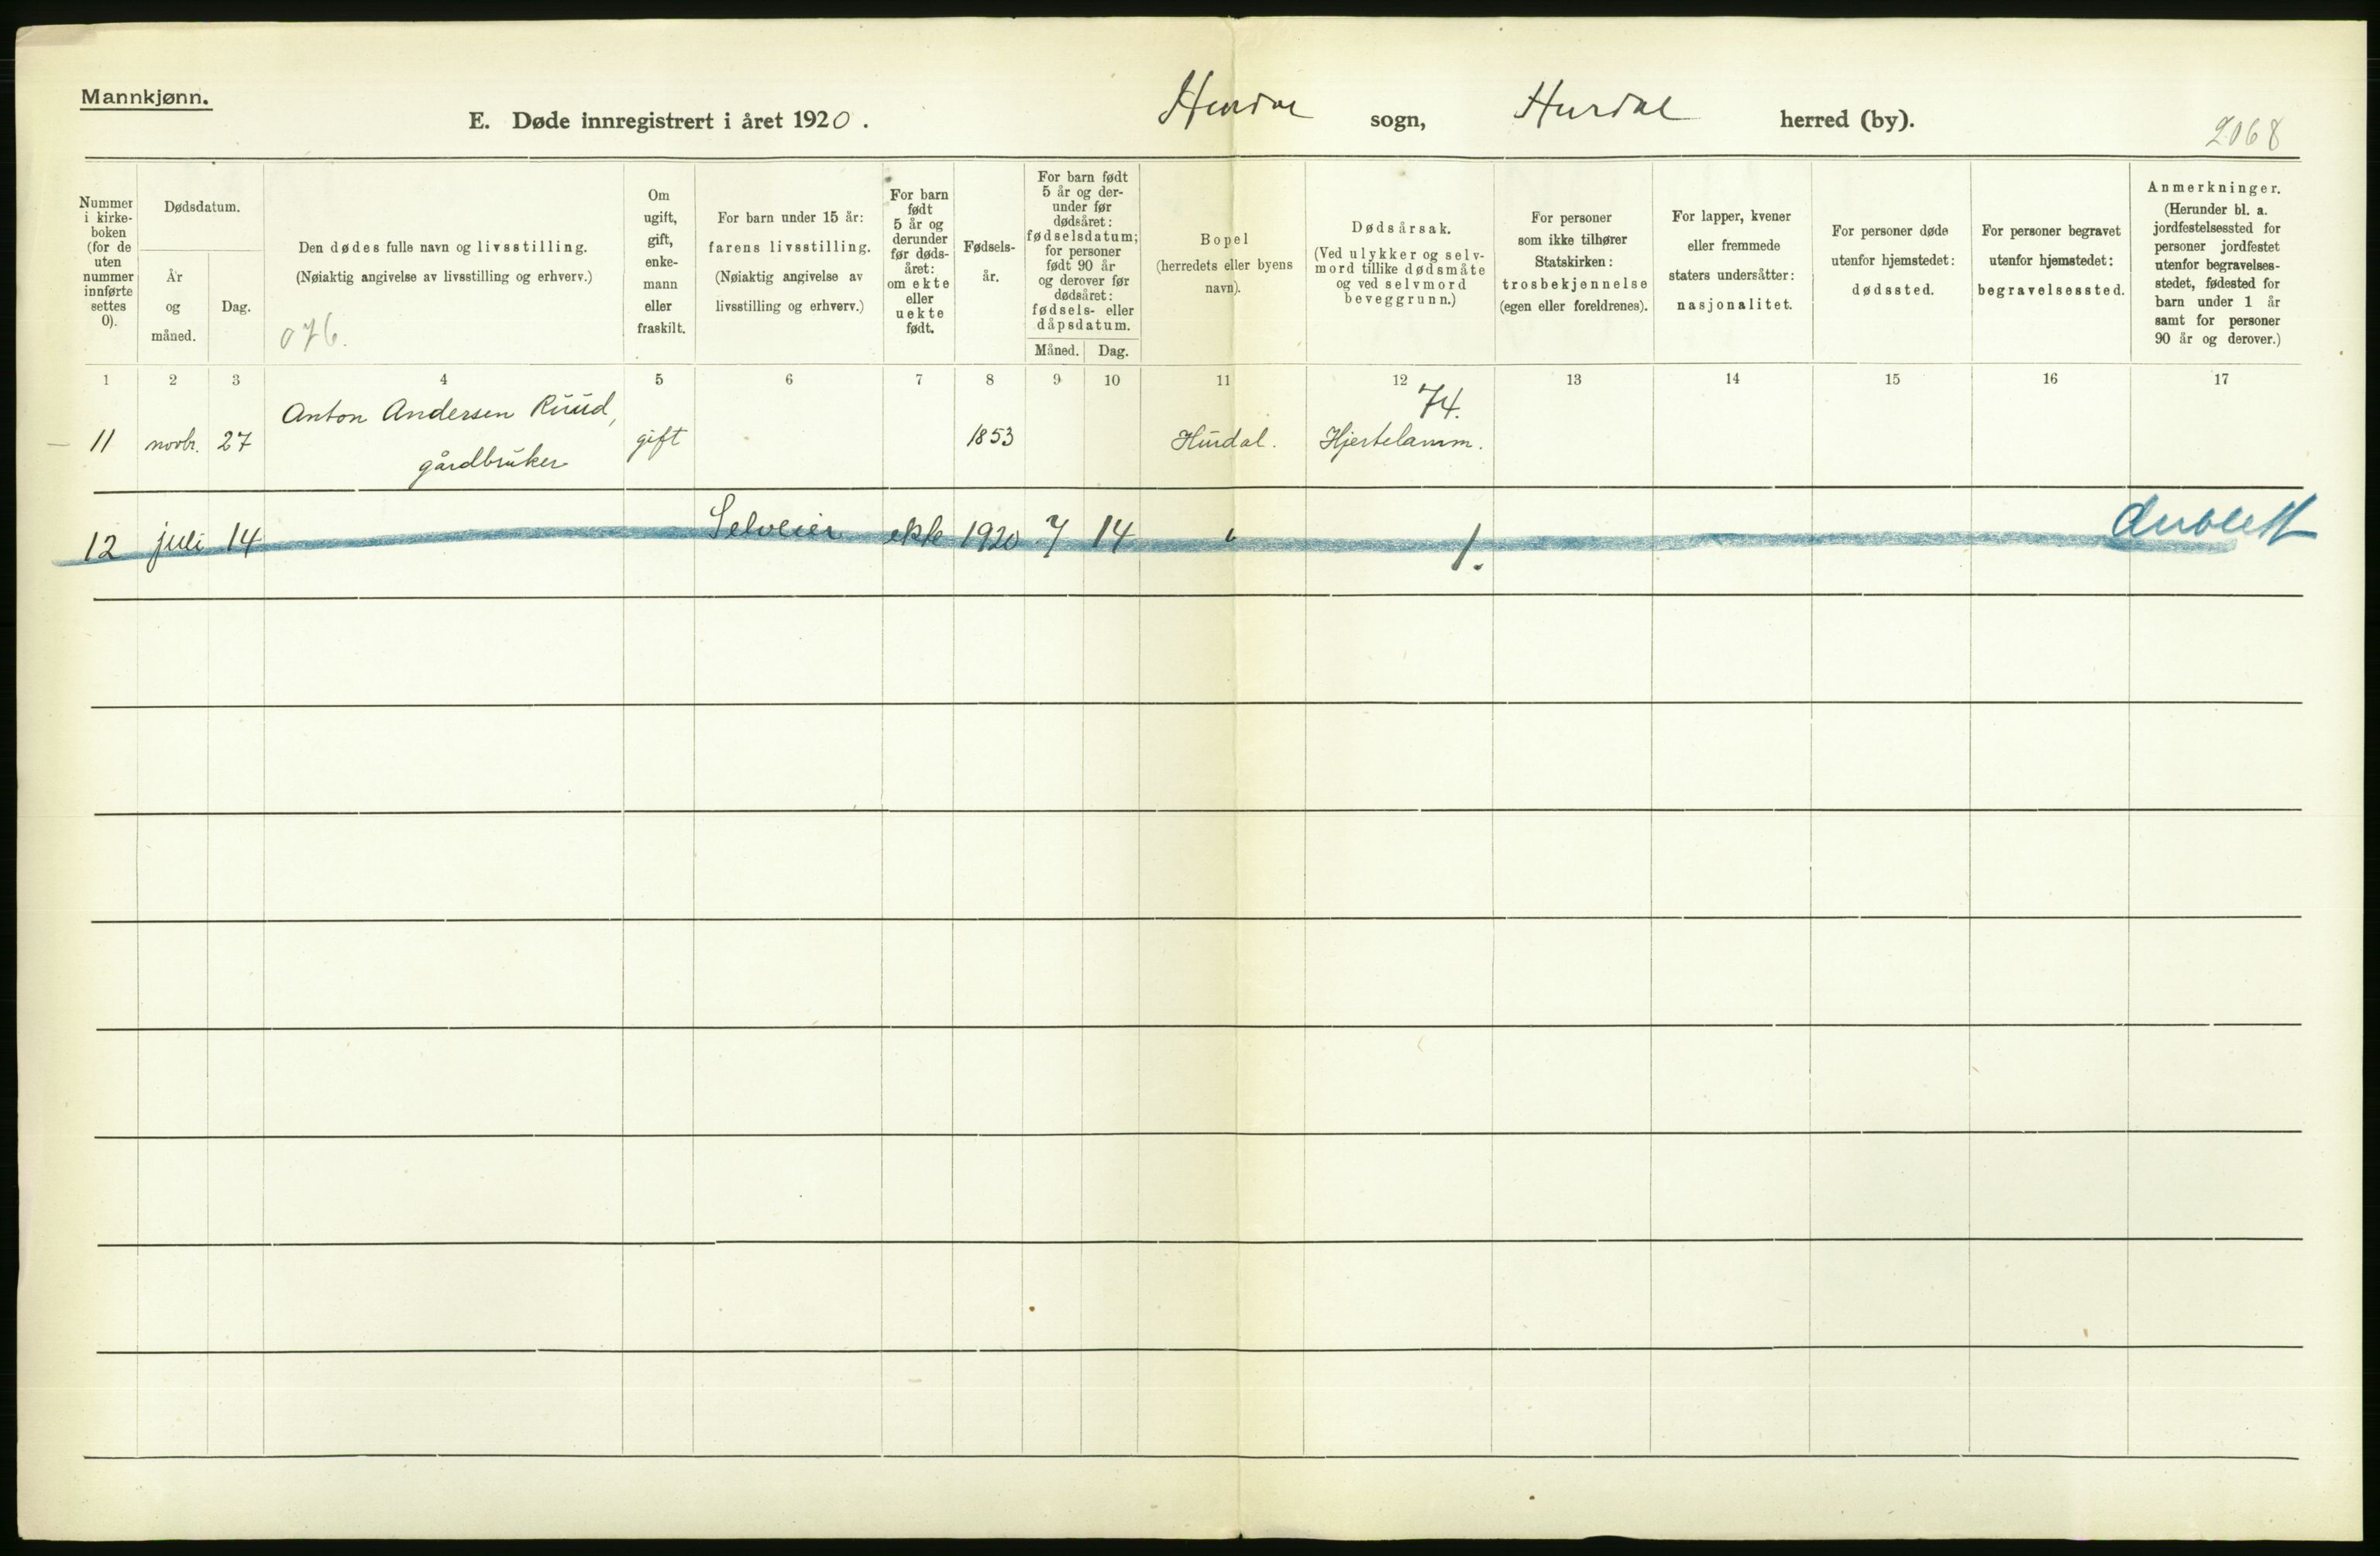 Mannkjønn.
E. Døde innregistrert i året 1920. Hurdal sogn, Hurdal herred (by).
2068
Nummer
i kirke-
boken
(for de
uten
nummer
innførte
settes
0).
Dødsdatum.
År
og
måned.
Dag.
Den dødes fulle navn og livsstilling.
(Nøiaktig angivelse av livsstilling og erhverv.)
076.
Om
ugift,
gift,
enke-
mann
eller
fraskilt.
For barn under 15 år:
farens livsstilling.
(Nøiaktig angivelse av
livsstilling og erhverv.)
For barn
født
5 år og
derunder
før døds-
året:
om ekte
eller
uekte
født.
Fødsels-
år.
For barn født
5 år og der-
under før
dødsåret:
fødselsdatum;
for personer
født 90 år
og derover før
dødsåret:
fødsels- eller
dåpsdatum.
Måned. Dag.
Bopel
(herredets eller byens
navn).
Dødsårsak.
(Ved ulykker og selv-
mord tillike dødsmåte
og ved selvmord
beveggrunn.)
For personer
som ikke tilhører
Statskirken:
trosbekjennelse
(egen eller foreldrenes).
For lapper, kvener
eller fremmede
staters undersåtter:
nasjonalitet.
For personer døde
utenfor hjemstedet:
dødssted.
For personer begravet
utenfor hjemstedet:
begravelsessted.
Anmerkninger.
(Herunder bl. a.
jordfestelsessted for
personer jordfestet
utenfor begravelses-
stedet, fødested for
barn under 1 år
samt for personer
90 år og derover.)
1 2 3 4 5 6 7 8 9 10 11 12 13 14 15 16 17
74.
Anton Andersen Ruud,
11 novbr. 27 gift 1853 Hurdal. Hjertelamm.
gårdbruker
12 juli 14 Selveier ekte 1920 7 14 " 1. dublett